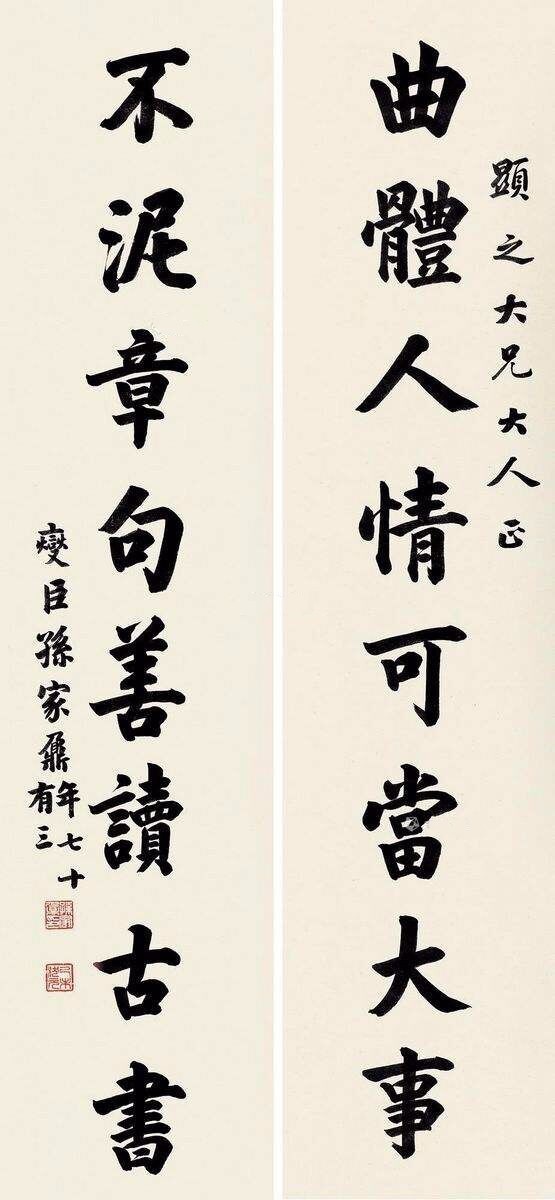 顯之大兄大人正
曲體人情可當大事
不泥章句善讀古書
燮臣孫家鼐年七十有三